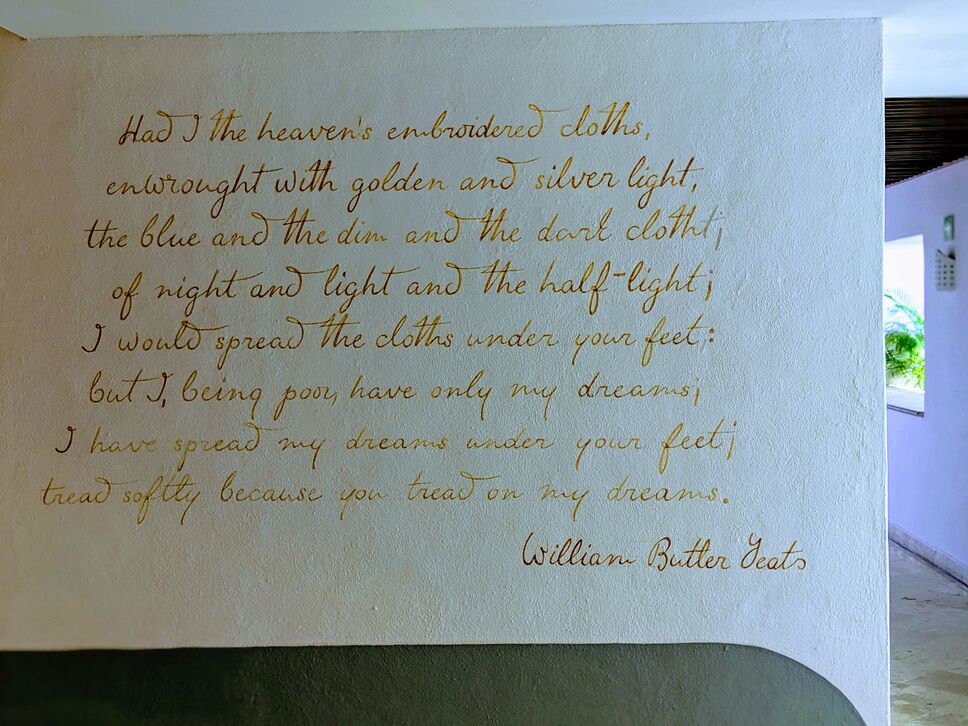 Had I the heaven's embroidered cloths,
enwrought with golden and silver light,
the blue and the dim and the dark cloths
of night and light and the half-light;
I would spread the cloths under your feet:
but I, being poor, have only my dreams;
I have spread my dreams under your feet;
tread softly because you tread on my dreams.
William Butler Yeats